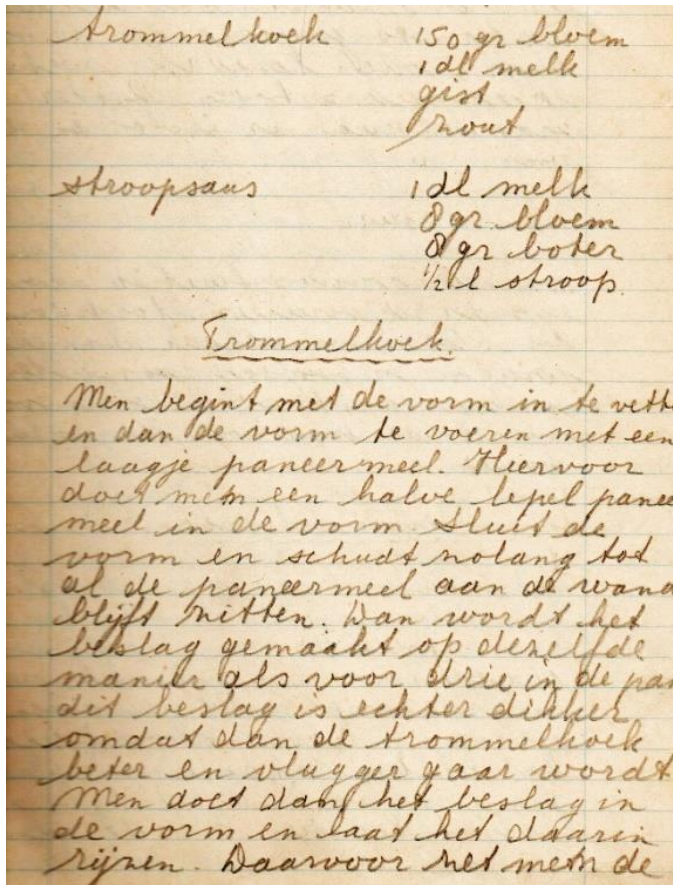 trommelkoek 150 gr bloem
1 dl melk
gist
zout
stroopsaus 1 dl melk
8 gr. bloem
8 gr boter
1/2 l stroop.
Trommelkoek.
Men begint met de vorm in te vett
en dan de vorm te voeren met een
laagje paneermeel. Hiervoor
doet men een halve lepel panee
meel in de vorm sluit de
vorm en schudt zolang tot
al de paneermeel aan de wand
blijft zitten. Dan wordt het
beslag gemaakt op dezelfde
manier als voor drie in de pan
dit beslag is echter dikker
omdat dan de trommelkoek
beter en vlugger gaar wordt
Men doet dan het beslag in
de vorm en laat het daarin
rijzen. Daarvoor zet men de